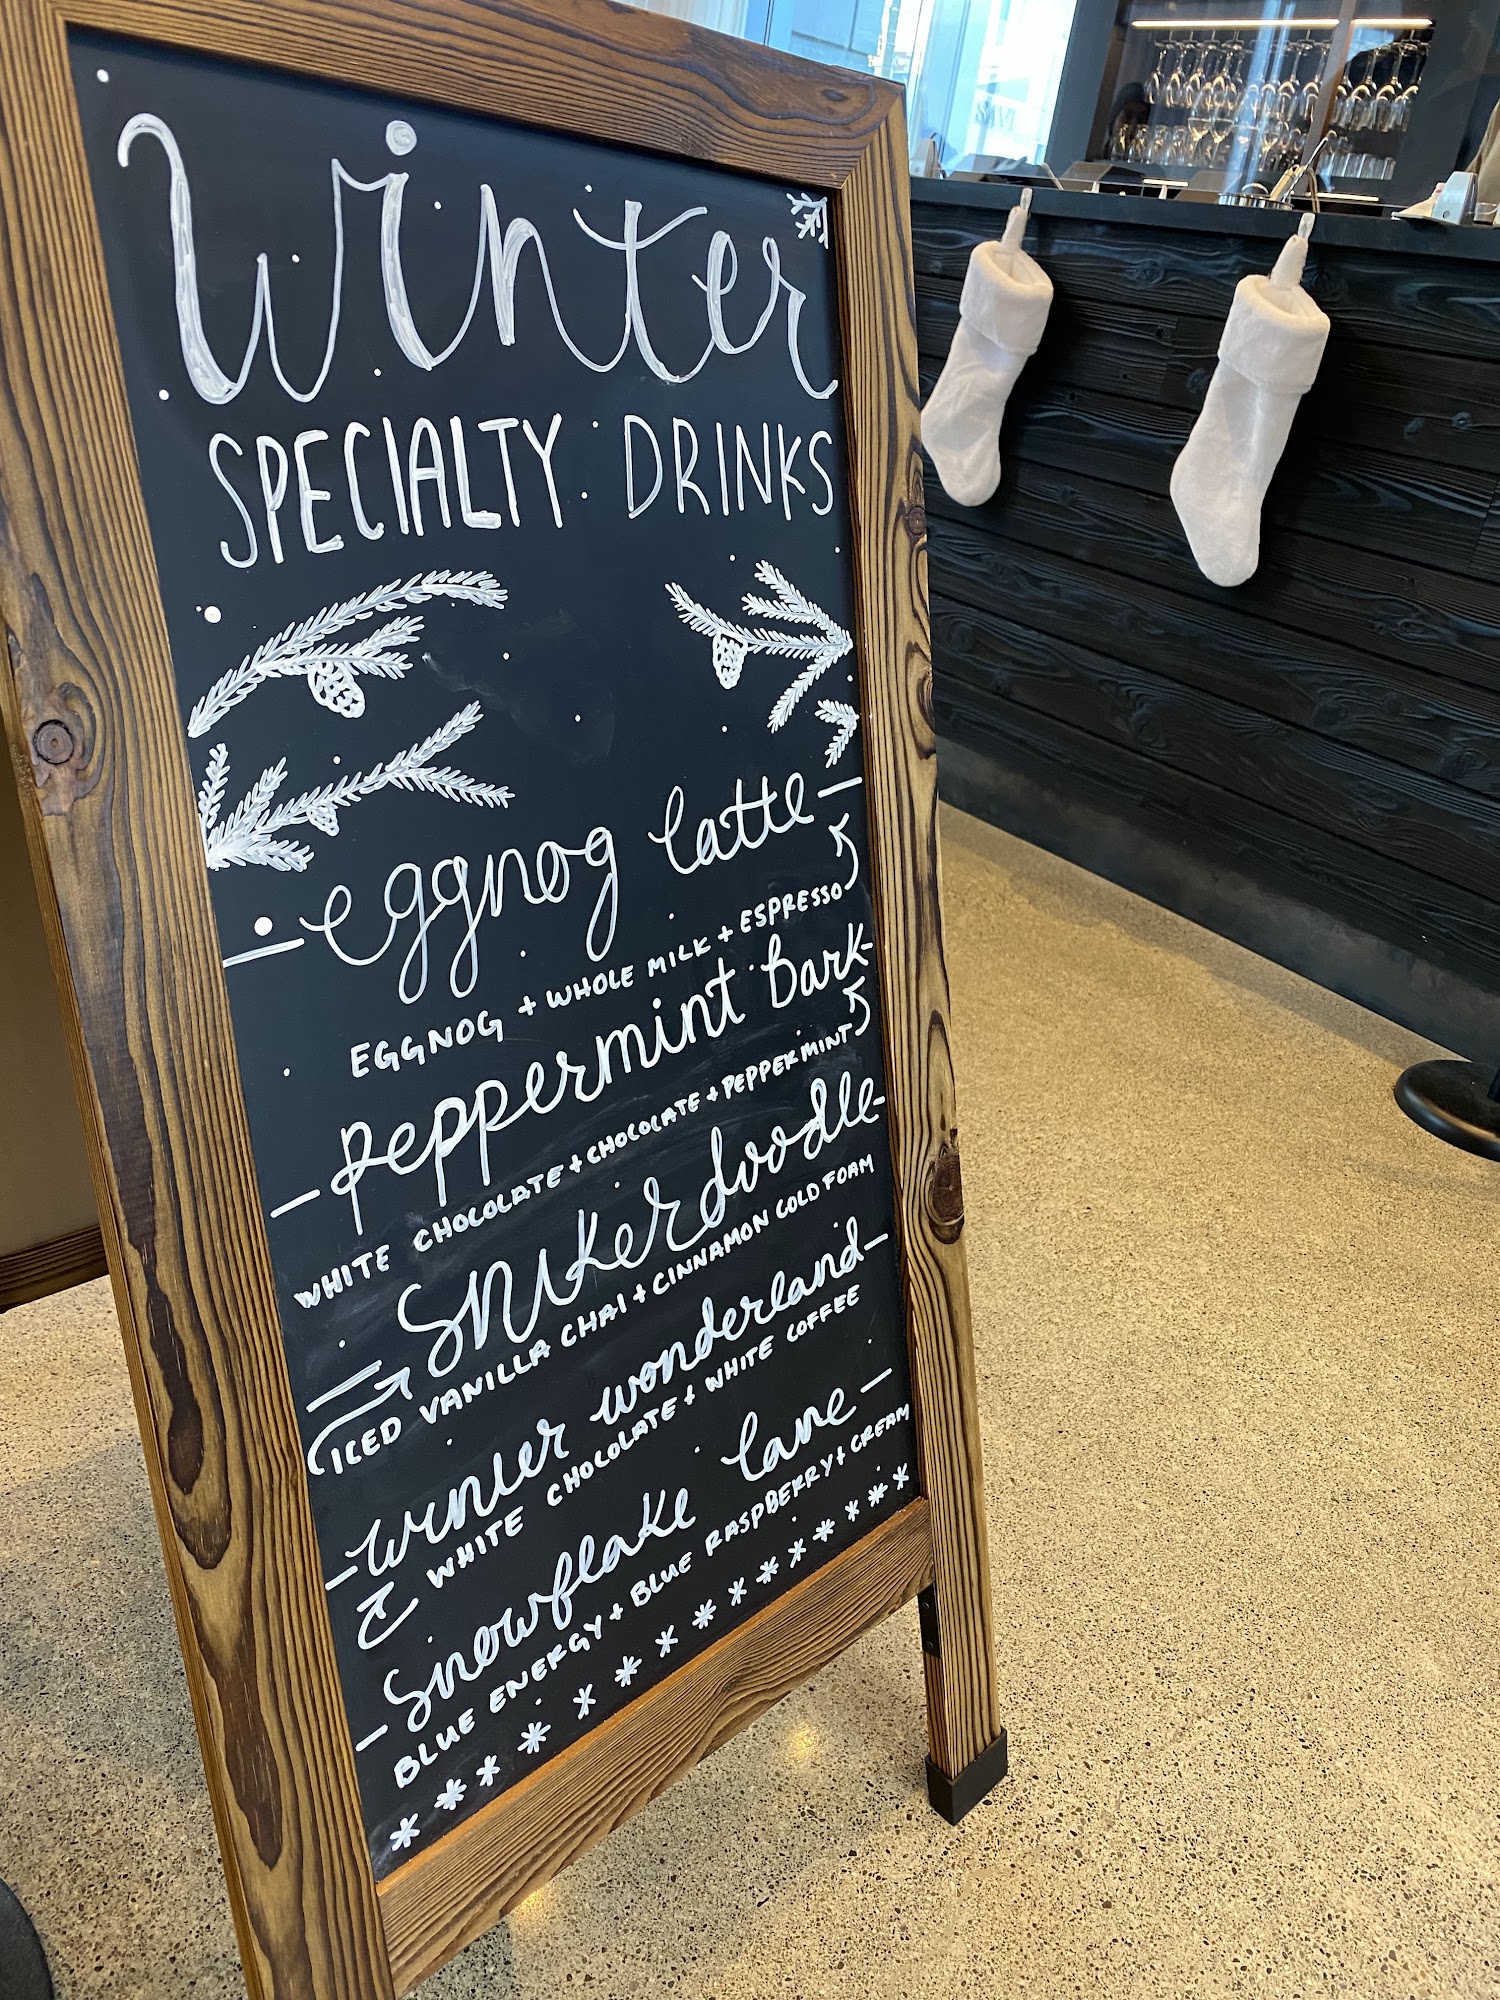 Winter
SPECIALTY DRINKS
- eggnog latte -
EGGNOG + WHOLE MILK + ESPRESSO
- peppermint bark -
WHITE CHOCOLATE + CHOCOLATE + PEPPERMINT
- snikerdoodle -
ICED VANILLA CHAI + CINNAMON COLD FOAM
- winter wonderland -
WHITE CHOCOLATE + WHITE COFFEE
- snowflake lane -
BLUE ENERGY + BLUE RASPBERRY + CREAM